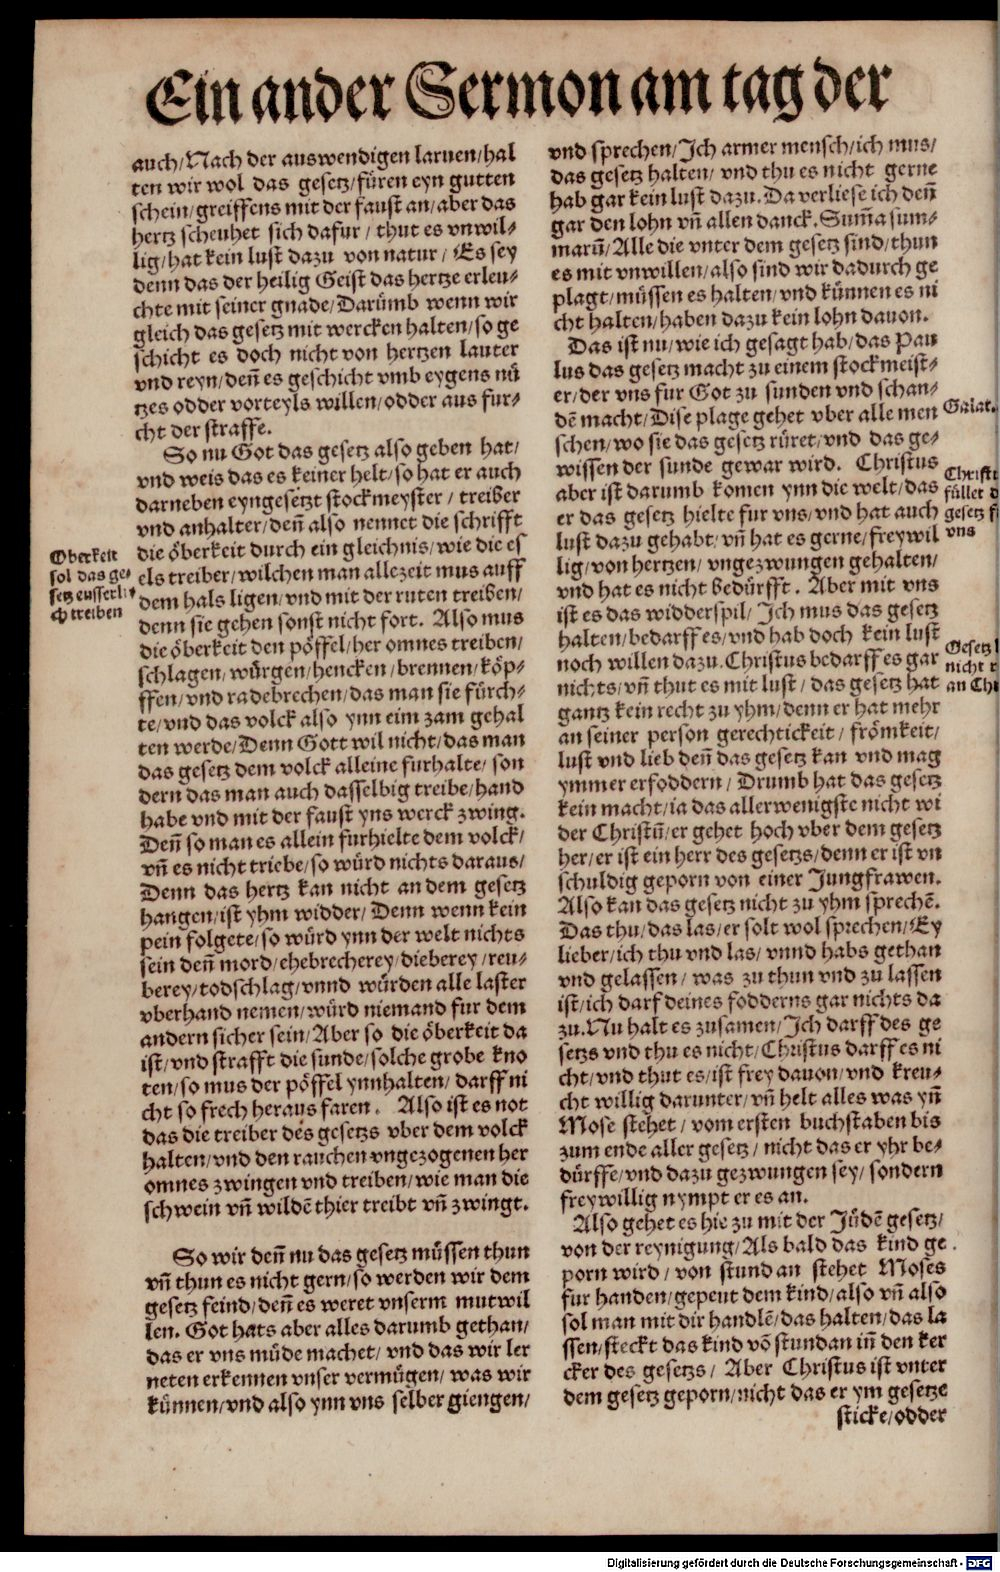 Ein ander Sermon am tag der
auch/Nach der auswendigen laruen/hal
ten wir wol das gesetz/füren eyn gutten
schein/greiffens mit der faust an/aber das
hertz scheuhet sich dafur/thut es vnwil-
lig/hat kein lust dazu von natur/Es sey
denn das der heilig Geist das hertze erleu-
chte mit seiner gnade/Darümb wenn wir
gleich das gesetz mit wercken halten/so ge
schicht es doch nicht von hertzen lauter
vnd reyn/deñ es geschicht vmb eygens nü
tzes odder vorteyls willen/odder aus fur-
cht der straffe.
So nu Got das gesetz also geben hat/
vnd weis das es keiner helt/so hat er auch
darneben eyngesetzt stockmeyster/treiber
vnd anhalter/deñ also nennet die schrifft
die öberkeit durch ein gleichnis/wie die es
els treiber/wilchen man allezeit mus auff
dem hals ligen/vnd mit der ruten treiben/
denn sie gehen sonst nicht fort. Also mus
die öberkeit den pöffel/her omnes treiben/
schlagen/würgen/hencken/brennen/köp-
ffen/vnd radebrechen/das man sie fürch-
te/vnd das volck also ynn eim zam gehal
ten werde/Denn Gott wil nicht/das man
das gesetz dem volck alleine furhalte/son
dern das man auch dasselbig treibe/hand
habe vnd mit der faust yns werck zwing.
Deñ so man es allein furhielte dem volck/
vñ es nicht triebe/so würd nichts daraus/
Denn das hertz kan nicht an dem gesetz
hangen/ist yhm widder/Denn wenn kein
pein folgete/so würd ynn der welt nichts
sein deñ mord/ehebrecherey/dieberey/reu-
berey/todschlag/vnnd würden alle laster
vberhand nemen/würd niemand fur dem
andern sicher sein/Aber so die öberkeit da
ist/vnd strafft die sunde/solche grobe kno
ten/so mus der pöffel ynnhalten/darff ni
cht so frech heraus faren. Also ist es not
das die treiber des gesetzs vber dem volck
halten/vnd den rauchen vngezogenen her
omnes zwingen vnd treiben/wie man die
schwein vñ wildē thier treibt vñ zwingt.
So wir deñ nu das gesetz müssen thun
vñ thun es nicht gern/so werden wir dem
gesetz feind/deñ es weret vnserm mutwil
len. Got hats aber alles darumb gethan/
das er vns müde machet/vnd das wir ler
neten erkennen vnser vermügen/was wir
künnen/vnd also ynn vns selber giengen/
Oberkeit
sol das ge-
setz eusserli-
ch treiben
vnd sprechen/Ich armer mensch/ich mus/
das gesetz halten/vnd thu es nicht gerne
hab gar kein lust dazu. Da verliese ich deñ
gar den lohn vñ allen danck. Sum̃a sum-
marū/Alle die vnter dem gesetz sind/thun
es mit vnwillen/also sind wir dadurch ge
plagt/müssen es halten/vnd künnen es ni
cht halten/haben dazu kein lohn dauon.
Das ist nu/wie ich gesagt hab/das Pau
lus das gesetz macht zu einem stockmeist-
er/der vns fur Got zu sunden vnd schan-
dē macht/Dise plage gehet vber alle men
schen/wo sie das gesetz rüret/vnd das ge-
wissen der sunde gewar wird. Christus
aber ist darumb komen ynn die welt/das
er das gesetz hielte fur vns/vnd hat auch
lust dazu gehabt/vñ hat es gerne/freywil
lig/von hertzen/vngezwungen gehalten/
vnd hat es nicht bedürfft. Aber mit vns
ist es das widderspil/Ich mus das gesetz
halten/bedarff es/vnd hab doch kein lust
noch willen dazu. Christus bedarff es gar
nichts/vñ thut es mit lust/das gesetz hat
gantz kein recht zu yhm/denn er hat mehr
an seiner person gerechtickeit/frömkeit/
lust vnd lieb deñ das gesetz kan vnd mag
ymmer erfoddern/Drumb hat das gesetz
kein macht/ia das allerwenigste nicht wi
der Christū/er gehet hoch vber dem gesetz
her/er ist ein herr des gesetzs/denn er ist vn
schuldig geporn von einer Jungfrawen.
Also kan das gesetz nicht zu yhm sprechē.
Das thu/das las/er solt wol sprechen/Ey
lieber/ich thu vnd las/vnnd habs gethan
vnd gelassen/was zu thun vnd zu lassen
ist/ich darf deines fodderns gar nichts da
zu. Nu halt es zusamen/Ich darff des ge
setzs vnd thu es nicht/Christus darff es ni
cht/vnd thut es/ist frey dauon/vnd kreu-
cht willig darunter/vñ helt alles was yñ
Mose stehet/vom ersten buchstaben bis
zum ende aller gesetz/nicht das er yhr be-
dürffe/vnd dazu gezwungen sey/sondern
freywillig nympt er es an.
Also gehet es hie zu mit der Jüdē gesetz/
von der reynigung/Als bald das kind ge
porn wird/von stund an stehet Moses
fur handen/gepeut dem kind/also vñ also
sol man mit dir handlē/das halten/das la
ssen/steckt das kind vō stundan iñ den ker
cker des gesetzs/Aber Christus ist vnter
dem gesetz geporn/nicht das er ym gesetze
sticke/odder
Galat.
Christ
füllet d
gesetz f
vns
Gesetz
nicht r
an Chr
Digitalisierung gefördert durch die Deutsche Forschungsgemeinschaft - DFG